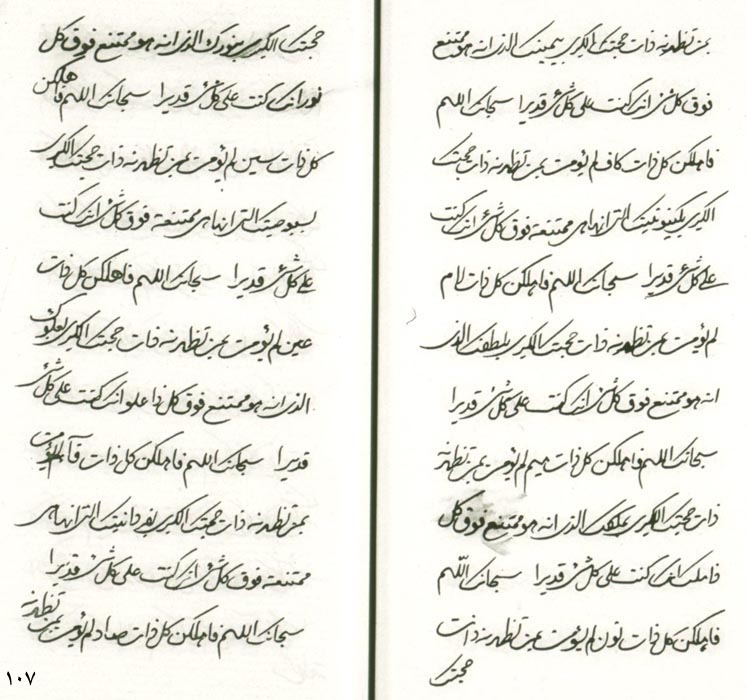 بمن تظهرنه ذات حجتک الکبری بیمینک الذی انه هو ممتنع
فوق کل شیٔ انک کنت علی کل شیٔ قدیرا سبحانک اللهم
فاهلکن کل ذات کاف لم یؤمنن بمن تظهرنه ذات حجتک
الکبری بکینونیتک التی انها هی ممتنعة فوق کل شیٔ انک کنت
علی کل شیٔ قدیرا سبحانک اللهم فاهلکن کل ذات لام
لم یؤمنن بمن تظهرنه ذات حجتک الکبری بلطفک الذی
انه هو ممتنع فوق کل شیٔ انک کنت علی کل شیٔ قدیرا
سبحانک اللهم فاهلکن کل ذات میم لم یؤمنن بمن تظهرنه
ذات حجتک الکبری بملکک الذی انه هو ممتنع فوق کل
ذا ملک انک کنت علی کل شیٔ قدیرا سبحانک اللهم
فاهلکن کل ذات نون لم یؤمنن بمن تظهرنه ذات
حجتک
حجتک الکبری بنورک الذی انه هو ممتنع فوق کل
نور انک کنت علی کل شیٔ قدیرا سبحانک اللهم فاهلکن
کل ذات سین لم یؤمنن بمن تظهرنه ذات حجتک الکبری
بسبوحیتک التی انها هی ممتنعة فوق کل شیٔ انک کنت
علی کل شیٔ قدیرا سبحانک اللهم فاهلکن کل ذات
عین لم یؤمنن بمن تظهرنه ذات حجتک الکبری بعلوک
الذی انه هو ممتنع فوق کل ذا علو انک کنت علی کل شیٔ
قدیرا سبحانک اللهم فاهلکن کل ذات فآ لم یؤمنن
بمن تظهرنه ذات حجتک الکبری بفردانیتک التی انها هی
ممتنعة فوق کل شیٔ انک کنت علی کل شیٔ قدیرا
سبحانک اللهم فاهلکن کل ذات صاد لم یؤمنن بمن تظهرنه
١٠٧